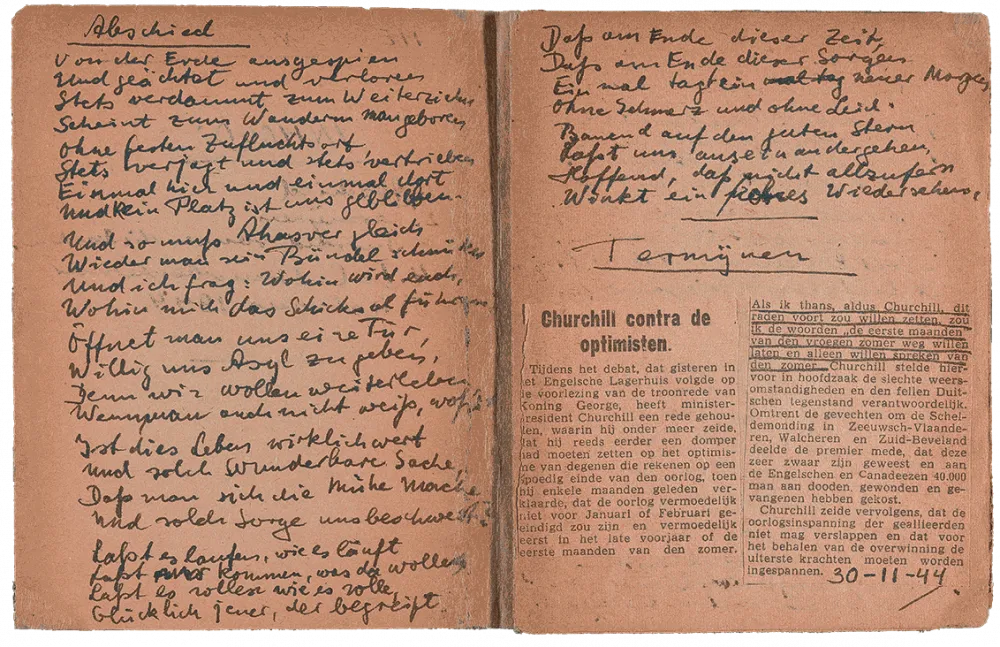 Abschied
Von der Erde ausgespien
Und geächtet und verloren
Stets verdammt zum Weiterziehn
Scheint zum Wandern man geboren
Ohne festen Zufluchtsort
Stets verjagt und stets vertrieben
Einmal hier und einmal dort
Und kein Platz ist uns geblieben.
Und so muss Ahasver gleich
Wieder man sein Bündel schnüren
Und ich frag: Wohin wird euch,
Wohin mich das Schicksal führen
Öffnet man uns eine Tür,
Willig uns Asyl zu geben,
Denn wir wollen weiterleben
Wenn man auch nicht weiß, wofür
Ist dies Leben wirklich wert
Und solch wunderbare Sache,
Daß man sich die Mühe mache
Und solch Sorge uns beschwert
Laßt es laufen, wie es läuft
Laßt kommen, was da wolle,
Laßt es rollen wie es rolle,
Glücklich jener, der begreift.
Daß am Ende dieser Zeit,
Daß am Ende dieser Sorgen
Ein mal tagt ein neuer Morgen
Ohne Schmerz und ohne Leid.
Bauend auf den guten Stern
Laßt uns auseinandergehen,
Hoffend, daß nicht allzufern
Winkt ein Wiedersehen,
Termijnen
Churchill contra de
optimisten.
Tijdens het debat, dat gisteren in
het Engelsche Lagerhuis volgde op
de voorlezing van de troonrede van
Koning George, heeft minister-
president Churchill een rede gehou-
den, waarin hij onder meer zeide,
dat hij reeds eerder een domper
had moeten zetten op het optimis-
me van degenen die rekenen op een
spoedig einde van den oorlog, toen
hij enkele maanden geleden ver-
klaarde, dat de oorlog vermoedelijk
niet voor Januari of Februari ge-
eindigd zou zijn en vermoedelijk
eerst in het late voorjaar of de
eerste maanden van den zomer.
Als ik thans, aldus Churchill, dit
raden voort zou willen zetten, zou
ik de woorden „de eerste maanden"
van den vroegen zomer weg willen
laten en alleen willen spreken van
den zomer. Churchill stelde hier-
voor in hoofdzaak de slechte weers-
omstandigheden en den fellen Duit-
schen tegenstand verantwoordelijk.
Omtrent de gevechten om de Schel-
demonding in Zeeuwsch-Vlaande-
ren, Walcheren en Zuid-Beveland
deelde de premier mede, dat deze
zeer zwaar zijn geweest en aan
de Engelschen en Canadeezen 40.000
man aan dooden, gewonden en ge-
vangenen hebben gekost.
Churchill zeide vervolgens, dat de
oorlogsinspanning der geallieerden
niet mag verslappen en dat voor
het behalen van de overwinning de
uiterste krachten moeten worden
ingespannen. 30-11-44